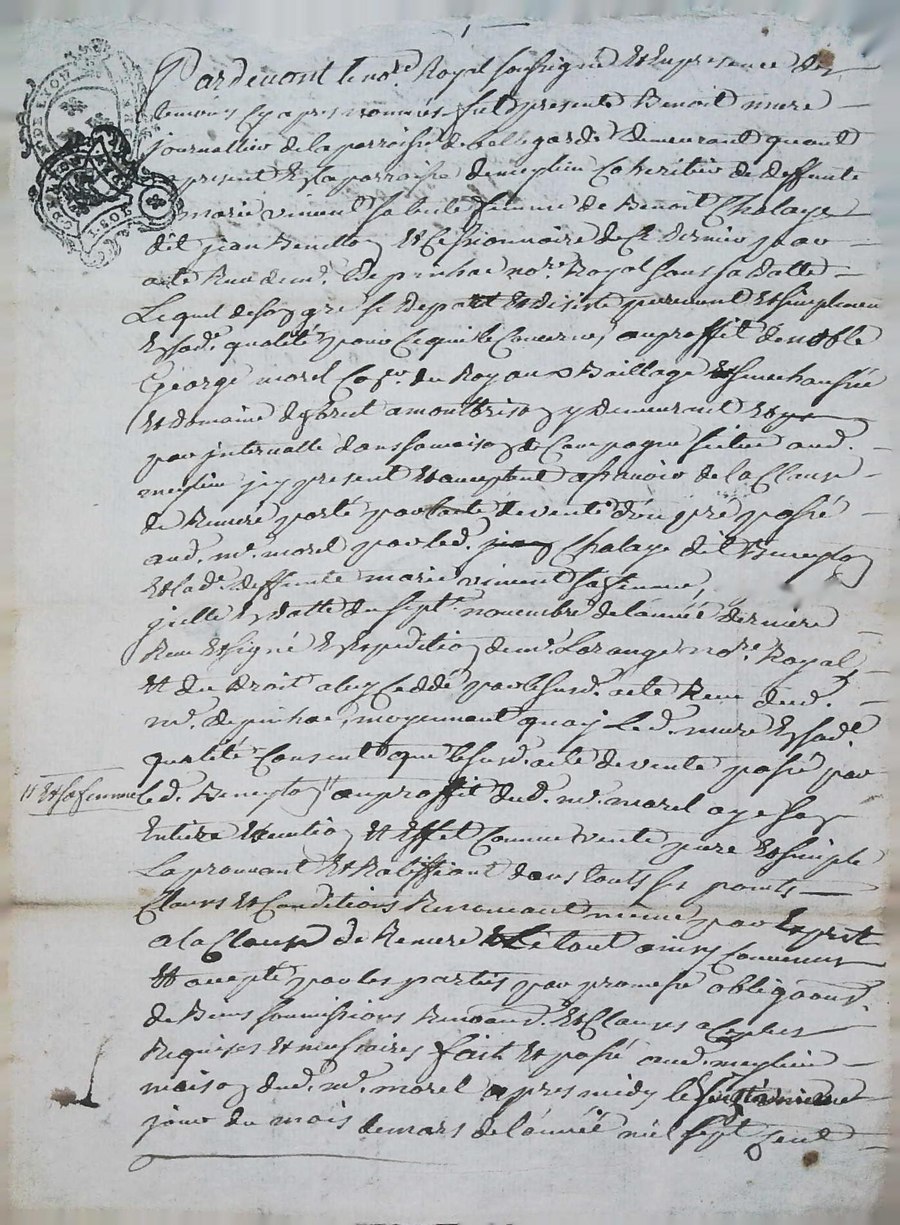 Pardevant le no.re Royal soussigné Et En presence des
temoins Cy apres nommés fut presente Benoit mure
journallier de la parroisse de bellegarde demeurant quant
a present En la parroisse de meylieu Coheritier de deffunte
marie viment sa tante femme de Benoit Chalaye
dit jean Et Cessionnaire de Ce dernier par
acte Receu de m.e Depinhac no.re Royal sans sa datte
Lequel de son gré se Depart Et desiste purement Et simplement
En sad. qualité pour Ce qui le Concerne, au proffit de noble
George morel Con.er du Roy aux Baillage Et senechaussée
Et domaine de forest a montbrison y demeurant Et
par intervalle dans sa maison de Campagne située aud.
meylieu jcy present Et acceptant asscavoir de la Clause
de Remeré porté par l'acte de vente d'un pré passé
aud. m.r morel par led. Chalaye dit
Et lad. deffunte marie viment sa femme,
jcelle En datte du sept.e novembre de l'année derniere
Receu Et signé En Expedition de m.e Lorange no.re Royal
Et du Droit a luy Ceddé par le susd. acte Receu dud.
m.e depinhac, moyennant quoy Led. mure En sad.e
qualité Consent que le susd. acte de vente passé par
led. " au proffit dud. m.r morel aye son
" Et sa femme
Entiere Execution Et Effet Comme vente pure Et simple
La prouvant Et Ratiffiant dans touts ses points
Clauses Et Conditions Renonceant meme par Exprit
a la Clause de Remere Le tout ainsy Convenus
Et accepté par les parties par promesse obligaons
de Biens soumissions Renonc.ns Et Clauses a Ce
Requises Et necessaires fait Et passé aud. meylieu
maison dud. m.r morel apres midy le
jour du mois de mars de l'année mil sept Cent